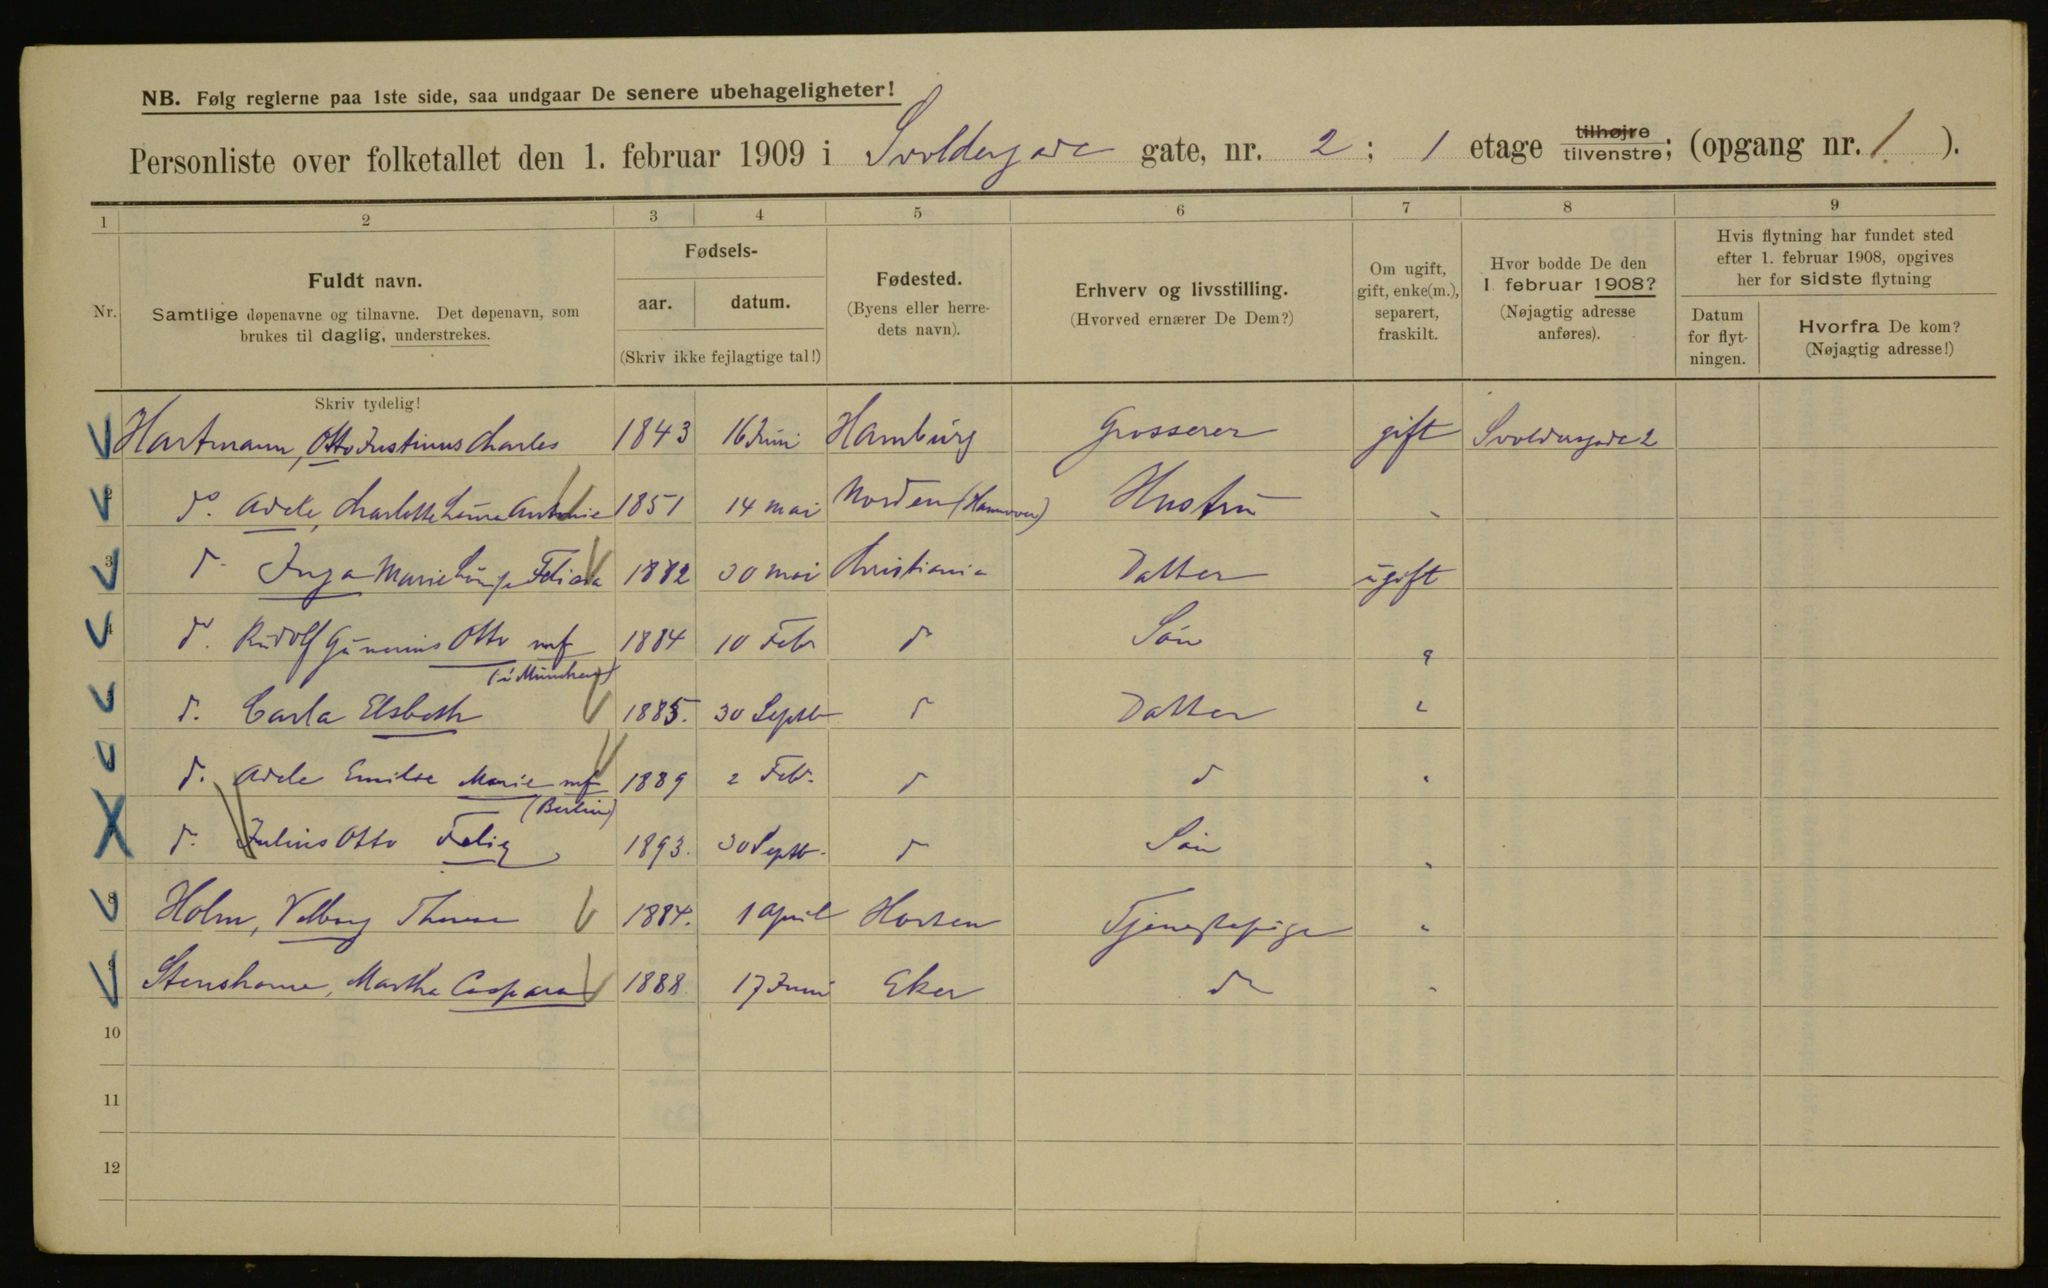 NB. Følg reglerne paa 1ste side, saa undgaar De senere ubehageligheter!
Personliste over folketallet den 1. februar 1909 i Svoldergade gate, nr. 2; 1 etage tilhøjre tilvenstre; (opgang nr. 1).
1 2 3 4 5 6 7 8 9
Nr. Fuldt navn. Samtlige døpenavne og tilnavne. Det døpenavn, som brukes til daglig, understrekes.
Fødsels- aar. datum. (Skriv ikke fejlagtige tal!)
Fødested. (Byens eller herredets navn).
Erhverv og livsstilling. (Hvorved ernærer De Dem?)
Om ugift, gift, enke(m.), separert, fraskilt.
Hvor bodde De den 1. februar 1908? (Nøjagtig adresse anføres).
Hvis flytning har fundet sted efter 1. februar 1908, opgives her for sidste flytning
Datum for flytningen. Hvorfra De kom? (Nøjagtig adresse!)
Skriv tydelig!
Hartmann, Otto Justinus Charles 1843 16 Juni Hamburg Grosserer gift Svoldergade 2
2 do Adele, Charlotte Antonie 1851 14 mai Norden (Hannover) Hustru "
3 d. Inga Marie Felicia 1882 30 mai Christiania Datter ugift
4 d. Rudolf Otto mf 1884 10 Febr d Søn "
(i München)
5 d. Carla Elsbeth 1885. 30 Septb d Datter "
d. Adele Emilie Marie mf 1889 2 Feb. d d "
(Berlin)
d. Julius Otto Felix 1893. 30 Septb. d Søn "
8 Holm, Valborg 1884. 1 April Horten Tjenestepige "
9 Martha Caspara 1888 17 Juni Eker d "
10
11
12